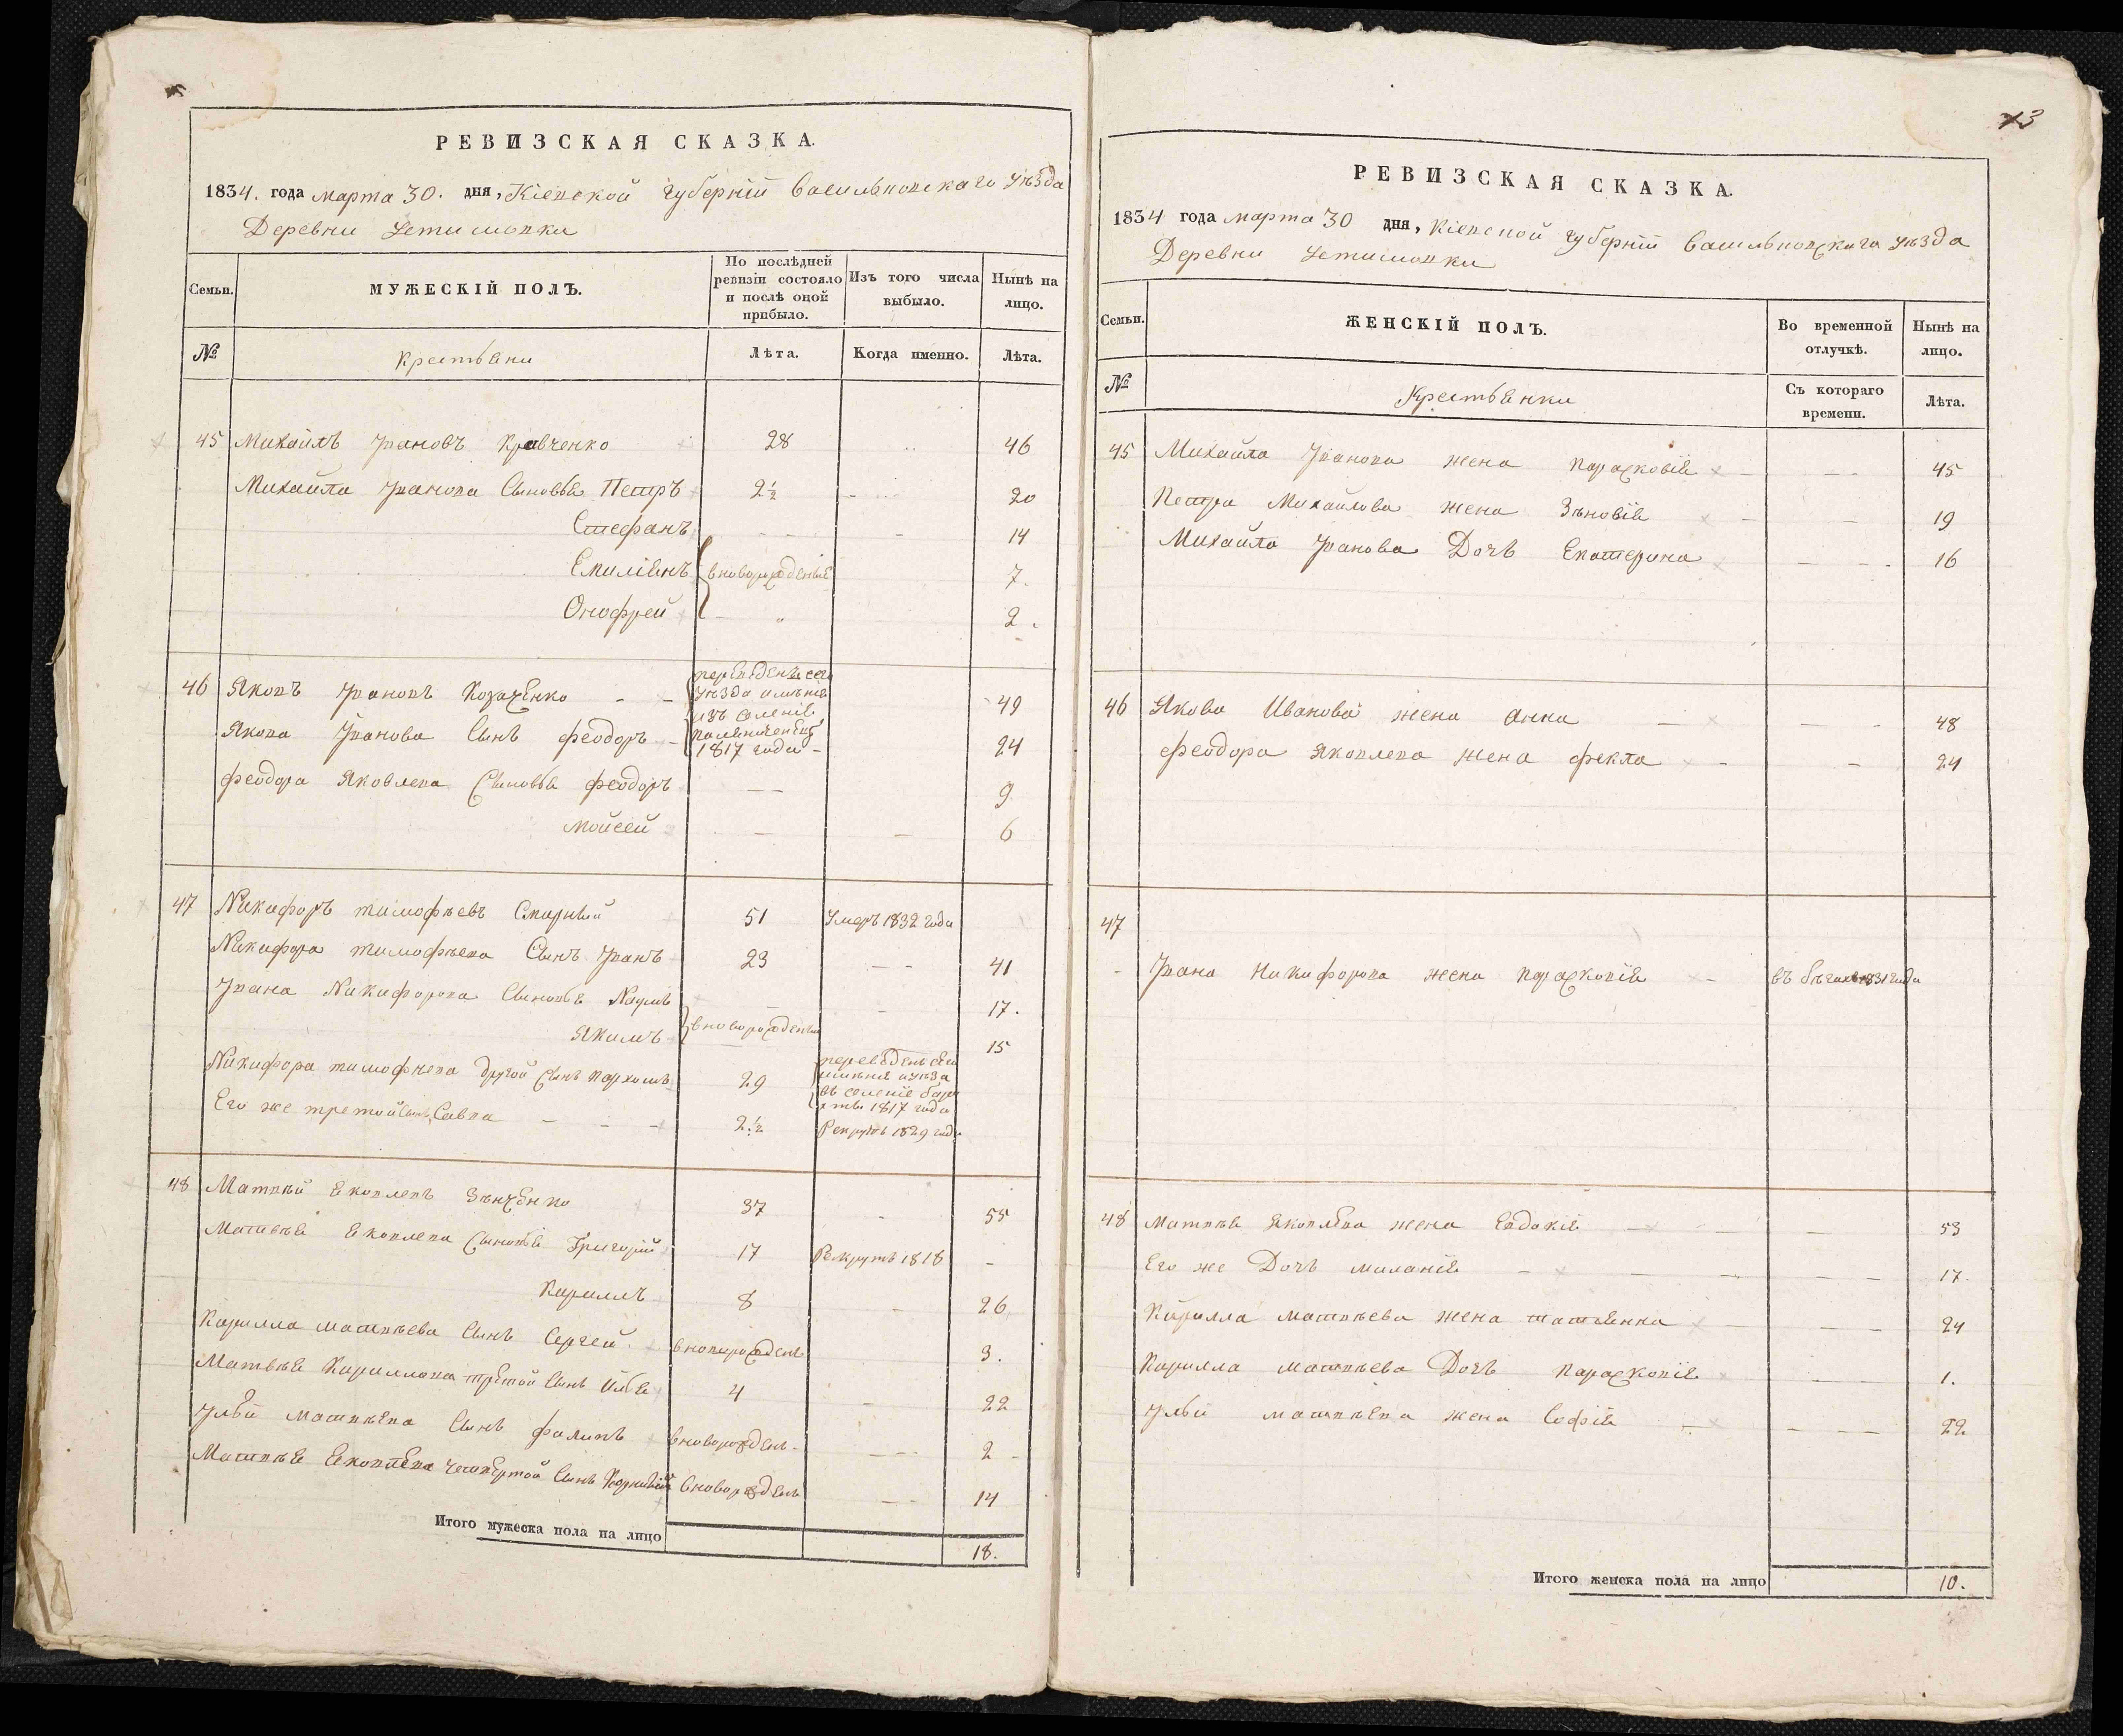 РЕВИЗСКАЯ СКАЗКА.
1834. года марта 30. дня, Кіевской губерніи Васильковскаго уѣзда
Деревни Устимовки
Семьи.
МУЖЕСКІЙ ПОЛЪ.
По послѣдней ревизіи состояло и послѣ оной прибыло.
Изъ того числа выбыло.
Нынѣ на лицо.
№ крестьяни Лѣта. Когда именно. Лѣта.
45 Михайлъ Ивановъ Кравченко 28 46
Михайла Иванова Сыновья Петръ 2½ 20
Стефанъ 14
Емиліянъ вноворождены 7.
Онофрей 2.
46 Яковъ Ивановъ Козаченко 49
Якова Иванова Сынъ Феодоръ 24
уѣзда
изъ селенія
1817 года
Феодора Яковлева Сыновья Феодоръ 9
Мойсей 6
47 Никифоръ тимофѣевъ 51 Умеръ 1832 года
Никифора тимофѣева Сынъ Иванъ 23 41
Ивана Никифорова Сыновья Наумъ 17.
Якимъ вноворождены 15
Никифора тимофѣева другой Сынъ Пархомъ 29
въ селеніе
1817 года
Его же третой Сынъ Савва 2½ Рекрутъ 1829 года
48 Матвѣй Яковлевъ Зѣнченко 37 55
Матвѣя Яковлева Сыновья Григорій 17 Рекрутъ 1818
Кириллъ 8 26
Кирилла матвѣева Сынъ Сергей вноворожденъ 3.
Матвѣя Кириллова третой Сынъ Илья 4 22
Ильи Матвѣева Сынъ Филипъ вноворожденъ 2
Матвѣя Яковлева четвертой Сынъ Корнилій вноворожденъ 14
Итого мужеска пола на лицо 18.
13
РЕВИЗСКАЯ СКАЗКА.
1834 года марта 30 дня, Кіевской губерніи Васильковскаго уѣзда
Деревни Устимовки
Семьи.
ЖЕНСКІЙ ПОЛЪ.
Во временной отлучкѣ.
Нынѣ на лицо.
№ Крестьянки Съ котораго времени. Лѣта.
45 Михайла Иванова жена Парасковія 45
Петра Михайлова жена Зѣновія 19
Михайла Иванова Дочь Екатерина 16
46 Якова Иванова жена Анна 48
Феодора Яковлева жена Фекла 24
47
Ивана Никифорова жена Парасковія въ бѣгахъ 1831 года
48 Матвѣя Яковлева жена Евдокія 53
Его же Дочь Миланія 17.
Кирилла матвѣева жена татьянна 24
Кирилла матвѣева Дочь Парасковія 1.
Ильи матвѣева жена Софія 22
Итого женска пола на лицо 10.